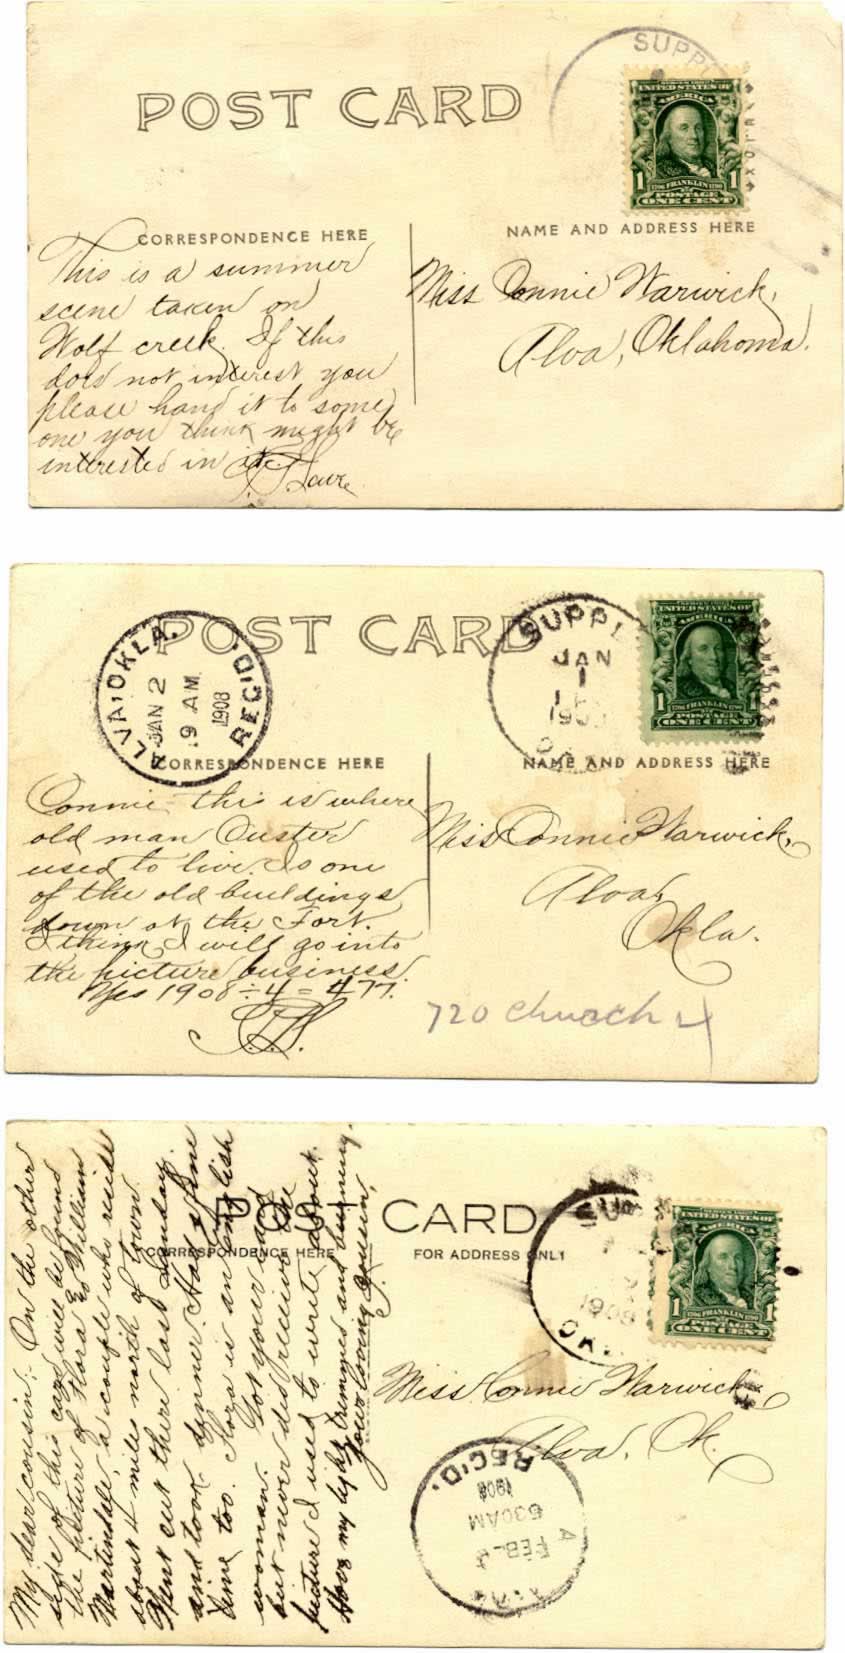 POST CARD
SUPPL
UNITED STATES OF
AMERICA
1 1706 FRANKLIN 1790 1
POSTAGE
ONE CENT
CORRESPONDENCE HERE
NAME AND ADDRESS HERE
This is a summer
scene taken on
Wolf creek. If this
does not interest you
please hand it to some
one you think might be
interested in it.
Miss Connie Warwick,
Alva, Oklahoma.
POST CARD
ALVA, OKLA.
JAN 2
9 AM
1908
REC'D.
SUPPLY
JAN
1
190
UNITED STATES OF
AMERICA
1 FRANKLIN 1
POSTAGE
ONE CENT
CORRESPONDENCE HERE
NAME AND ADDRESS HERE
Connie this is where
old man Custer
used to live. Is one
of the old buildings
down at the Fort.
I think I will go into
the picture business.
Yes 1908 ÷ 4 = 477.
Miss Connie Warwick,
Alva,
Okla.
720 church
POST CARD
CORRESPONDENCE HERE
FOR ADDRESS ONLY
SUP
1908
OK
UNITED STATES OF
AMERICA
1 FRANKLIN 1
POSTAGE
ONE CENT
My dear cousin: On the other
side of this card will be found
the picture of Flora & William
Martindale, a couple who reside
about 4 miles north of town.
Went out there last Sunday
and took dinner. Had a fine
time too. Flora is an English
woman. Got your card
but never did receive the
picture I used to write about.
Have my lights trimmed and burning.
Your loving Cousin,
Miss Connie Warwick,
Alva, Ok.
FEB
630AM
1908
REC'D.